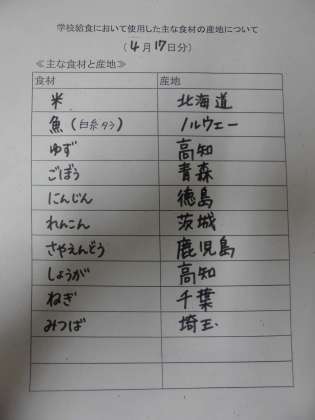 学校給食において使用した主な食材の産地について
(4月17日分)
≪主な食材と産地≫
食材 産地
米 北海道
魚(白糸タラ) ノルウェー
ゆず 高知
ごぼう 青森
にんじん 徳島
れんこん 茨城
さやえんどう 鹿児島
しょうが 高知
ねぎ 千葉
みつば 埼玉